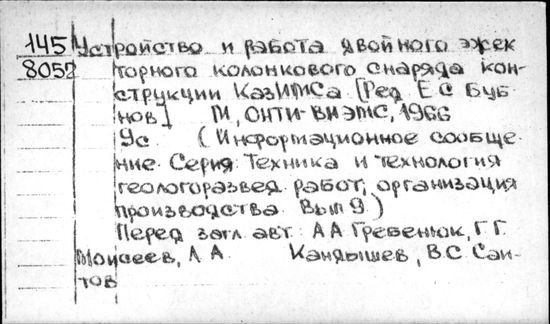 145 Устройство и работа двойного эжек
8052 торного колонкового снаряда кон-
струкции КазИМСа [Ред Е С Буб
нов] М, ОНТИ-ВИЭМС, 1966
Ус (Информационное сообще-
ние Серия Техника и технология
геологоразвед работ, организация
производства Вып 9)
Перед загл авт: А А Гребенюк, Г. Г.
Моисеев, Л А Кандышев, В. С Саи-
тов